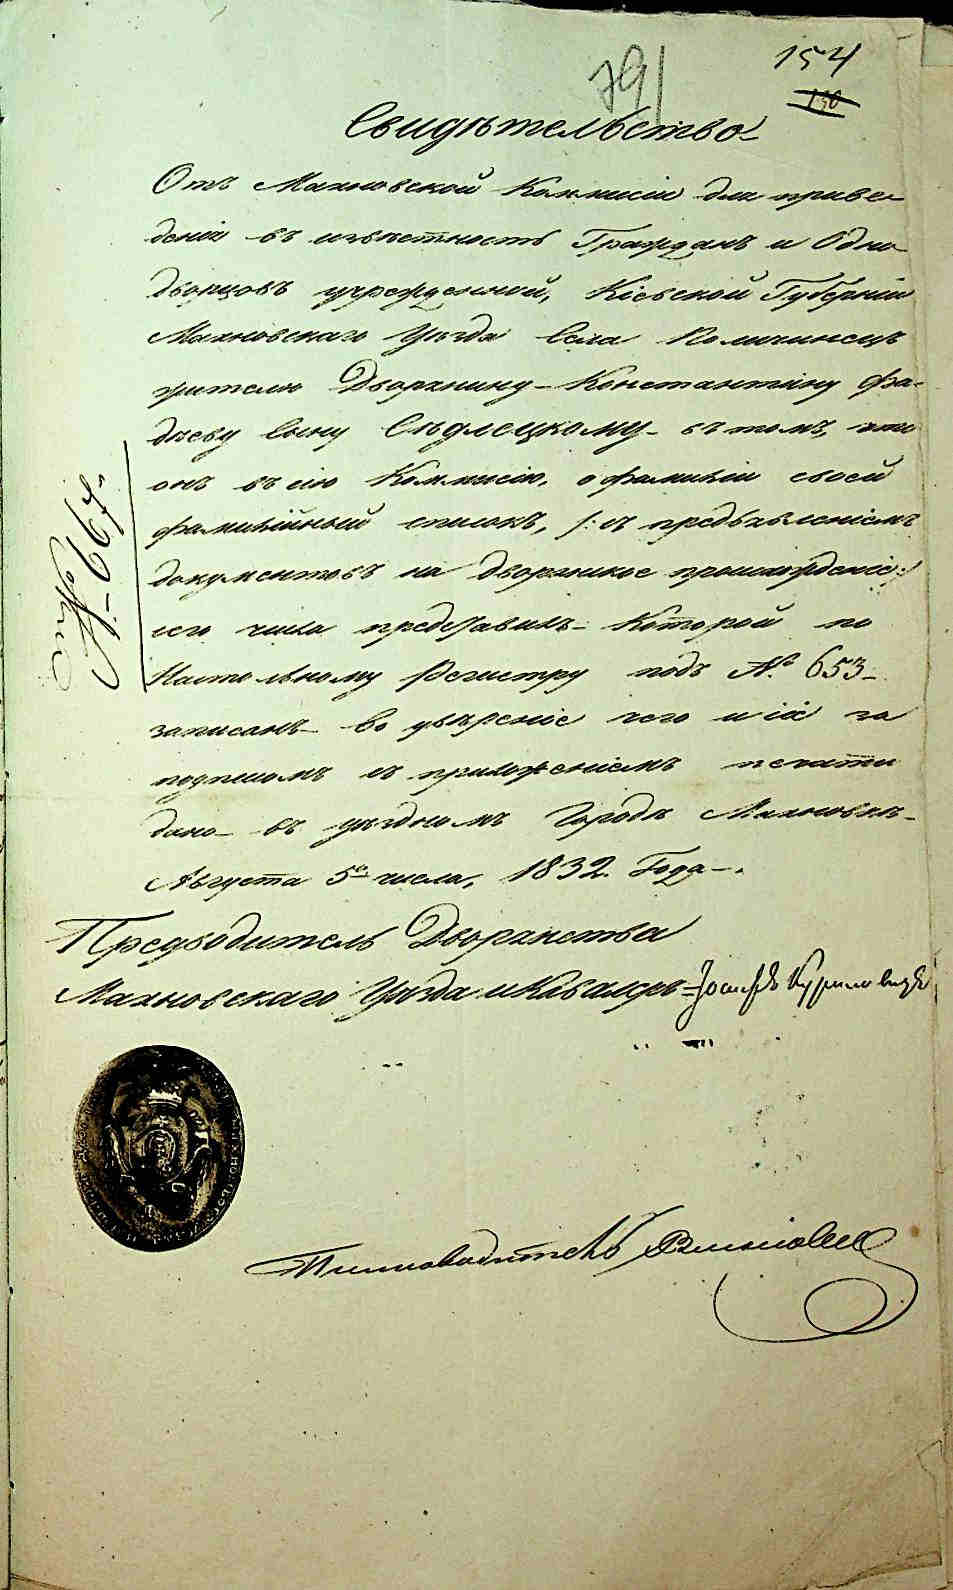 79
154
130
Свидѣтельство
Отъ Махновской Коммисіи для приве-
денія въ извѣстность Гражданъ и Одно-
дворцовъ учрежденной, Кіевской Губерніи
Махновскаго Уѣзда Села
жителю Дворянину Константину Фа-
дѣеву Сыну Сѣдлецкому въ томъ, что
онъ въ сію Коммисію, о фамиліи своей
фамилійный списокъ, /: съ предъявленіемъ
документовъ на дворянское происхожденіе :/
сего числа представилъ Которой по
Настольному Регистру подъ № 653
записанъ во увѣреніе чего и сіе за
подписомъ съ приложеніемъ печати
дано въ уѣздномъ Городѣ Махновкѣ
Августа 5го числа, 1832. Года
№ 667
Предводитель Дворянства
Махновскаго Уѣзда и Кавалеръ Іосифъ
Письмоводитель